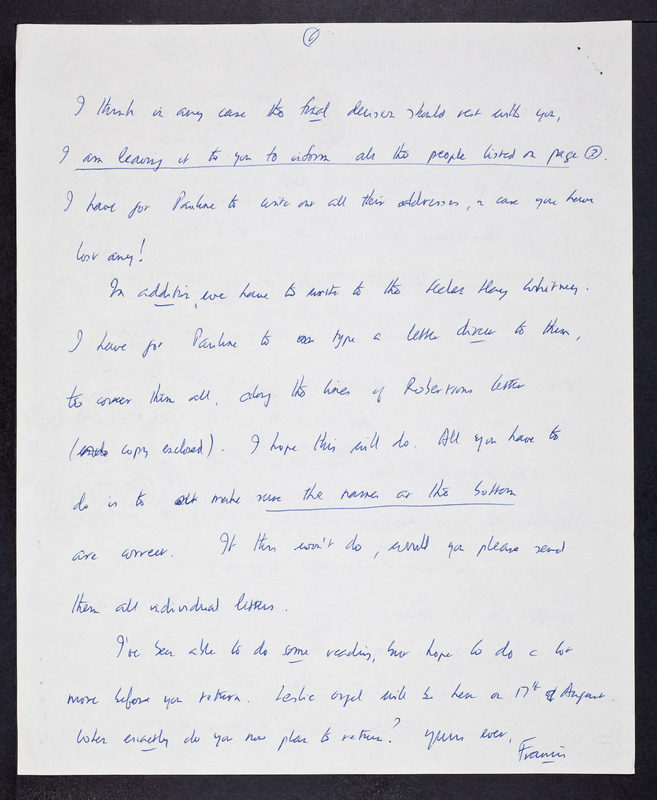 6
I think in any case the final decision should rest with you,
I am leaving it to you to inform all the people listed on page 2.
I have got Pauline to write out all their addresses, in case you have
lost any!
In addition, we have to write to the
I have got Pauline to type a letter direct to them,
to cover them all, along the lines of Robertson's letter
(copy enclosed). I hope this will do. All you have to
do is to make sure the names at the bottom
are correct. If this won't do, would you please send
them all individual letters.
I've been able to do some reading, but hope to do a lot
more before you return. Leslie Orgel will be here on 17th of August.
When exactly do you now plan to return? Yours ever,
Francis